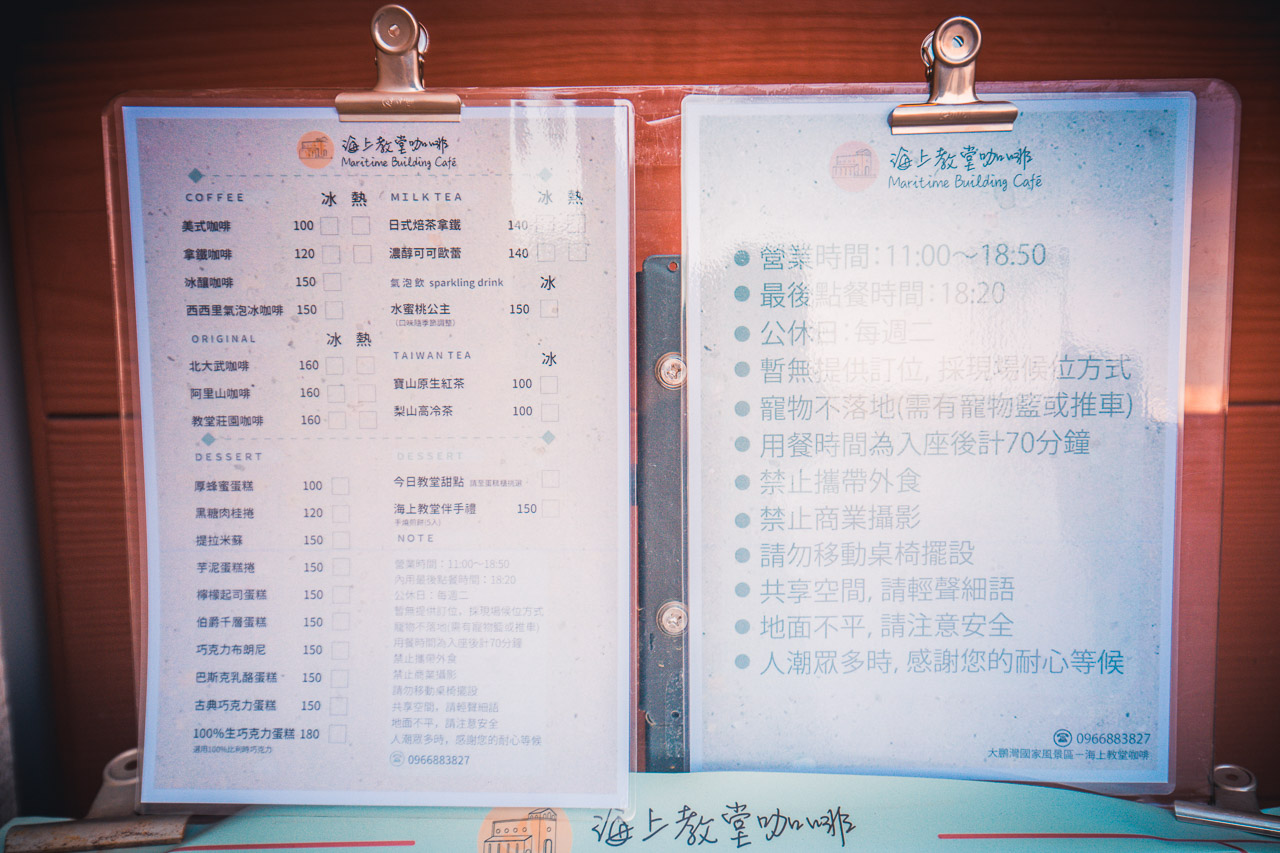 海上教堂咖啡
Maritime Building Café
COFFEE 冰 熱
美式咖啡 100
拿鐵咖啡 120
冰釀咖啡 150
西西里氣泡冰咖啡 150
ORIGINAL 冰 熱
北大武咖啡 160
阿里山咖啡 160
教堂莊園咖啡 160
MILK TEA 冰 熱
日式焙茶拿鐵 140
濃醇可可歐蕾 140
氣泡飲 sparkling drink 冰
水蜜桃公主 150
(口味隨季節調整)
TAIWAN TEA 冰
寶山原生紅茶 100
梨山高冷茶 100
DESSERT
厚蜂蜜蛋糕 100
黑糖肉桂捲 120
提拉米蘇 150
芋泥蛋糕捲 150
檸檬起司蛋糕 150
伯爵千層蛋糕 150
巧克力布朗尼 150
巴斯克乳酪蛋糕 150
古典巧克力蛋糕 150
100%生巧克力蛋糕 180
選用100%比利時巧克力
DESSERT
今日教堂甜點 請至蛋糕櫃挑選
海上教堂伴手禮 150
手燒煎餅(5入)
NOTE
營業時間：11:00～18:50
內用最後點餐時間：18:20
公休日：每週二
暫無提供訂位，採現場候位方式
寵物不落地(需有寵物籃或推車)
用餐時間為入座後計70分鐘
禁止攜帶外食
禁止商業攝影
請勿移動桌椅擺設
共享空間，請輕聲細語
地面不平，請注意安全
人潮眾多時，感謝您的耐心等候
0966883827
海上教堂咖啡
Maritime Building Café
● 營業時間：11:00～18:50
● 最後點餐時間：18:20
● 公休日：每週二
● 暫無提供訂位, 採現場候位方式
● 寵物不落地(需有寵物籃或推車)
● 用餐時間為入座後計70分鐘
● 禁止攜帶外食
● 禁止商業攝影
● 請勿移動桌椅擺設
● 共享空間, 請輕聲細語
● 地面不平, 請注意安全
● 人潮眾多時, 感謝您的耐心等候
0966883827
大鵬灣國家風景區－海上教堂咖啡
海上教堂咖啡